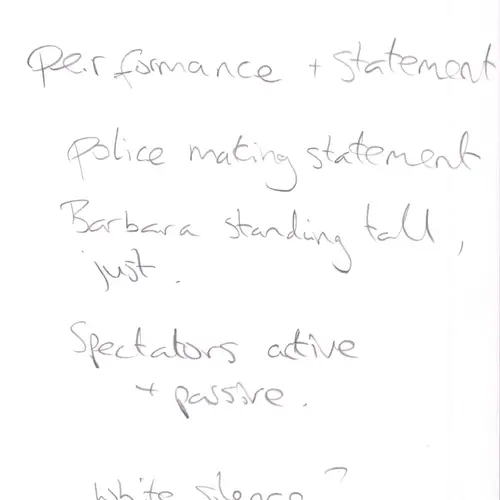 performance + statement
police making statement
Barbara standing tall,
just.
Spectators active
+ passive.
White silence?